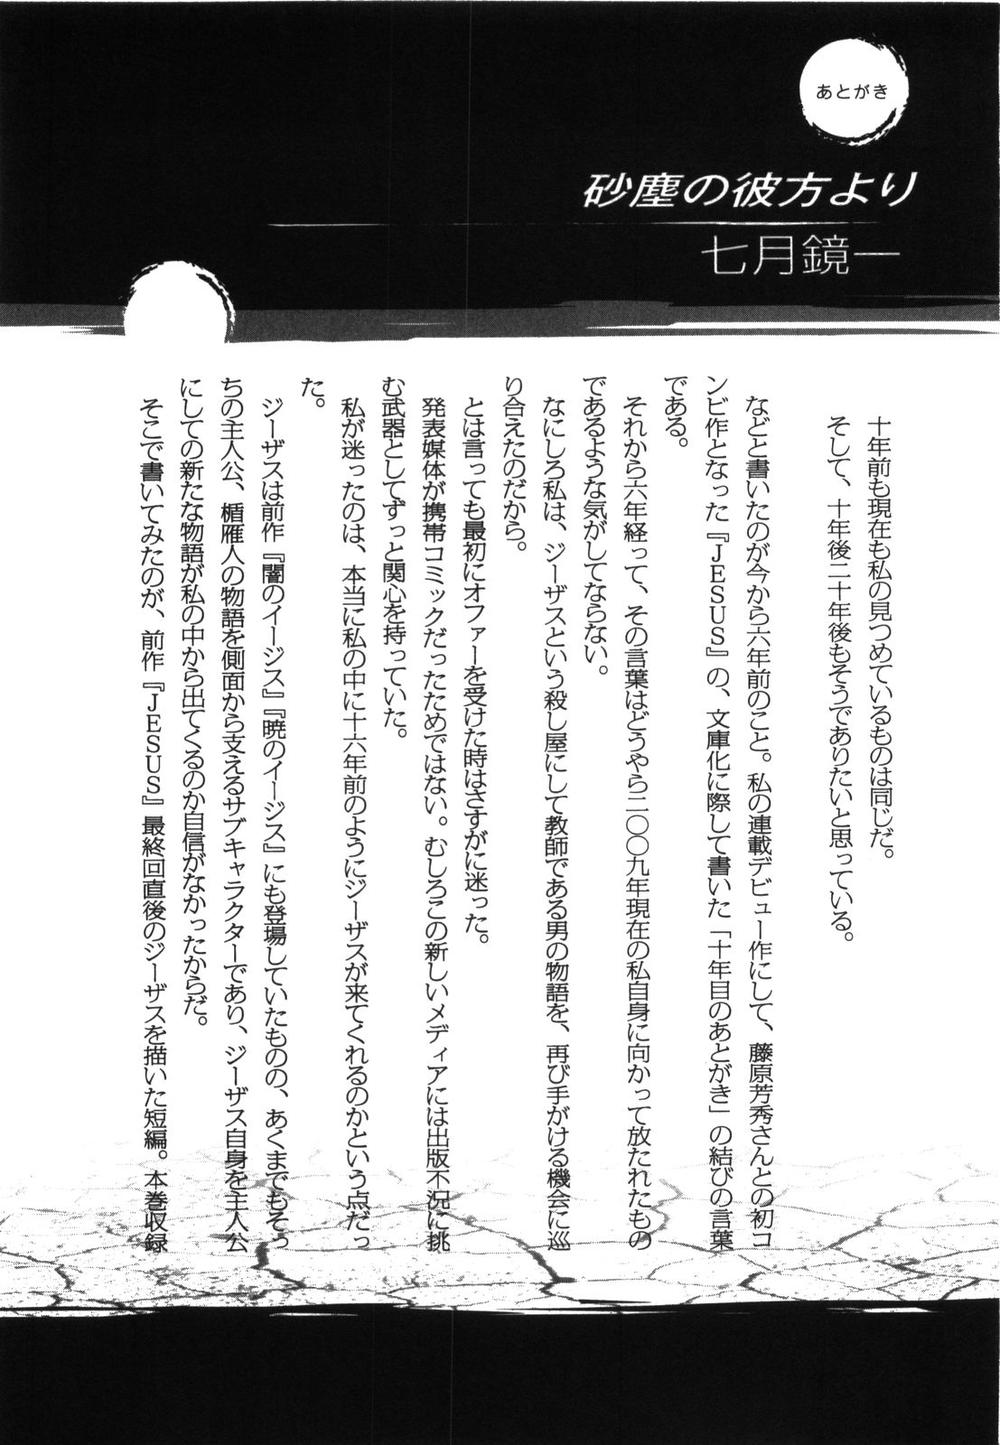 あとがき
砂塵の彼方より
七月鏡一
十年前も現在も私の見つめているものは同じだ。
そして、十年後二十年後もそうでありたいと思っている。
などと書いたのが今から六年前のこと。私の連載デビュー作にして、藤原芳秀さんとの初コ
ンビ作となった『JESUS』の、文庫化に際して書いた「十年目のあとがき」の結びの言葉
である。
それから六年経って、その言葉はどうやら二〇〇九年現在の私自身に向かって放たれたもの
であるような気がしてならない。
なにしろ私は、ジーザスという殺し屋にして教師である男の物語を、再び手がける機会に巡
り合えたのだから。
とは言っても最初にオファーを受けた時はさすがに迷った。
発表媒体が携帯コミックだったためではない。むしろこの新しいメディアには出版不況に挑
む武器としてずっと関心を持っていた。
私が迷ったのは、本当に私の中に十六年前のようにジーザスが来てくれるのかという点だっ
た。
ジーザスは前作『闇のイージス』『暁のイージス』にも登場していたものの、あくまでもそっ
ちの主人公、楯雁人の物語を側面から支えるサブキャラクターであり、ジーザス自身を主人公
にしての新たな物語が私の中から出てくるのか自信がなかったからだ。
そこで書いてみたのが、前作『JESUS』最終回直後のジーザスを描いた短編。本巻収録